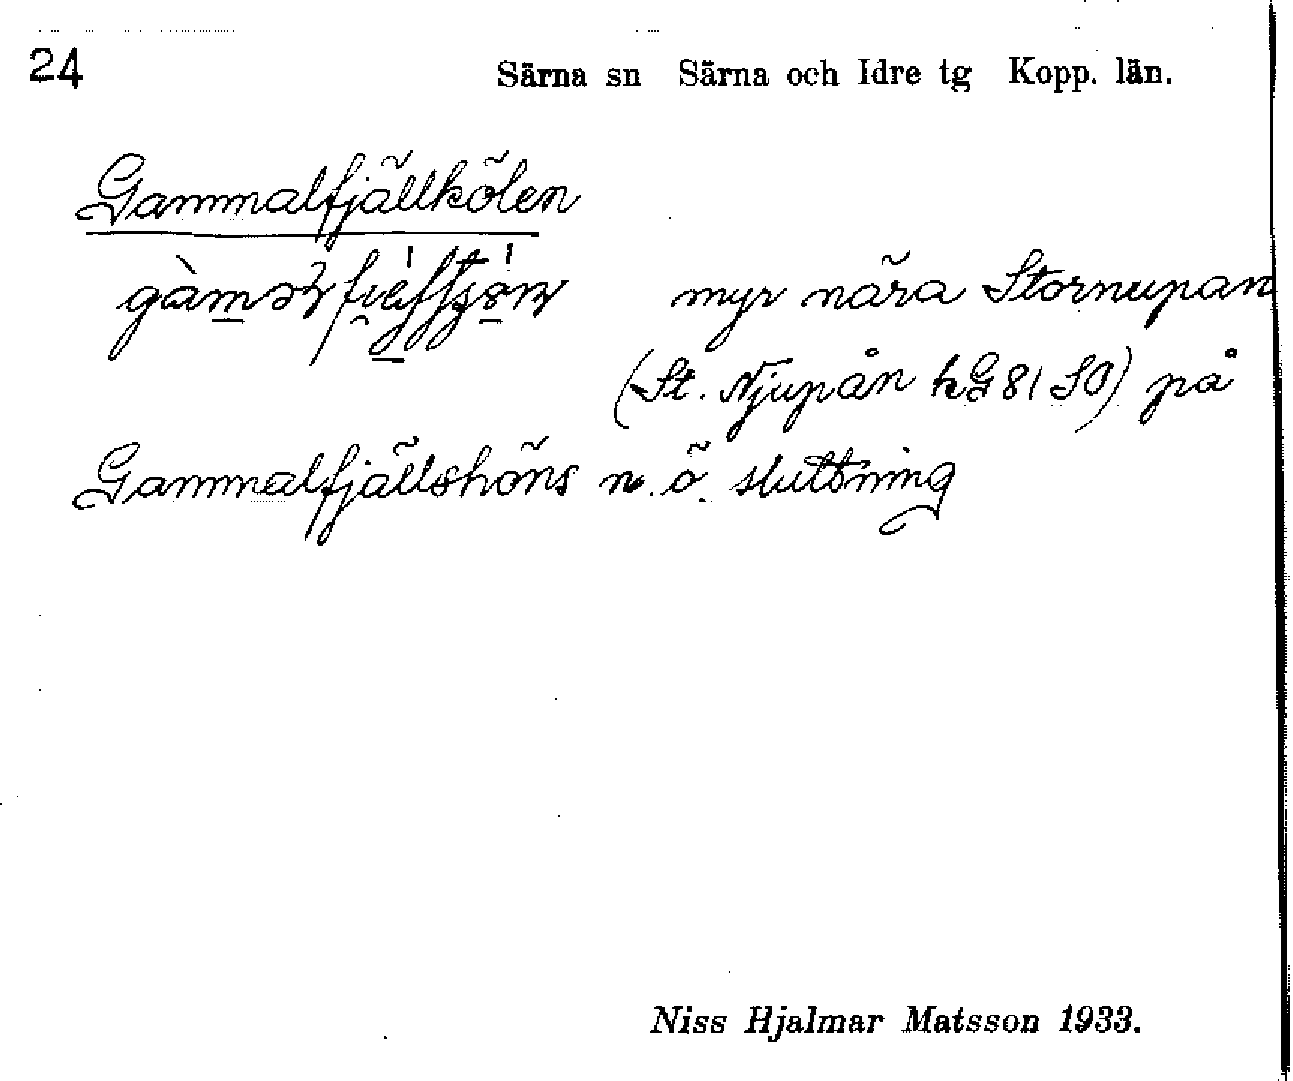 24
Särna sn Särna och Idre tg Kopp. län.
Gammalfjällkölen
myr nära Stornupan
(St. Njupån hG81 SO) på
Gammalfjällshöns n. ö. sluttning
Niss Hjalmar Matsson 1933.